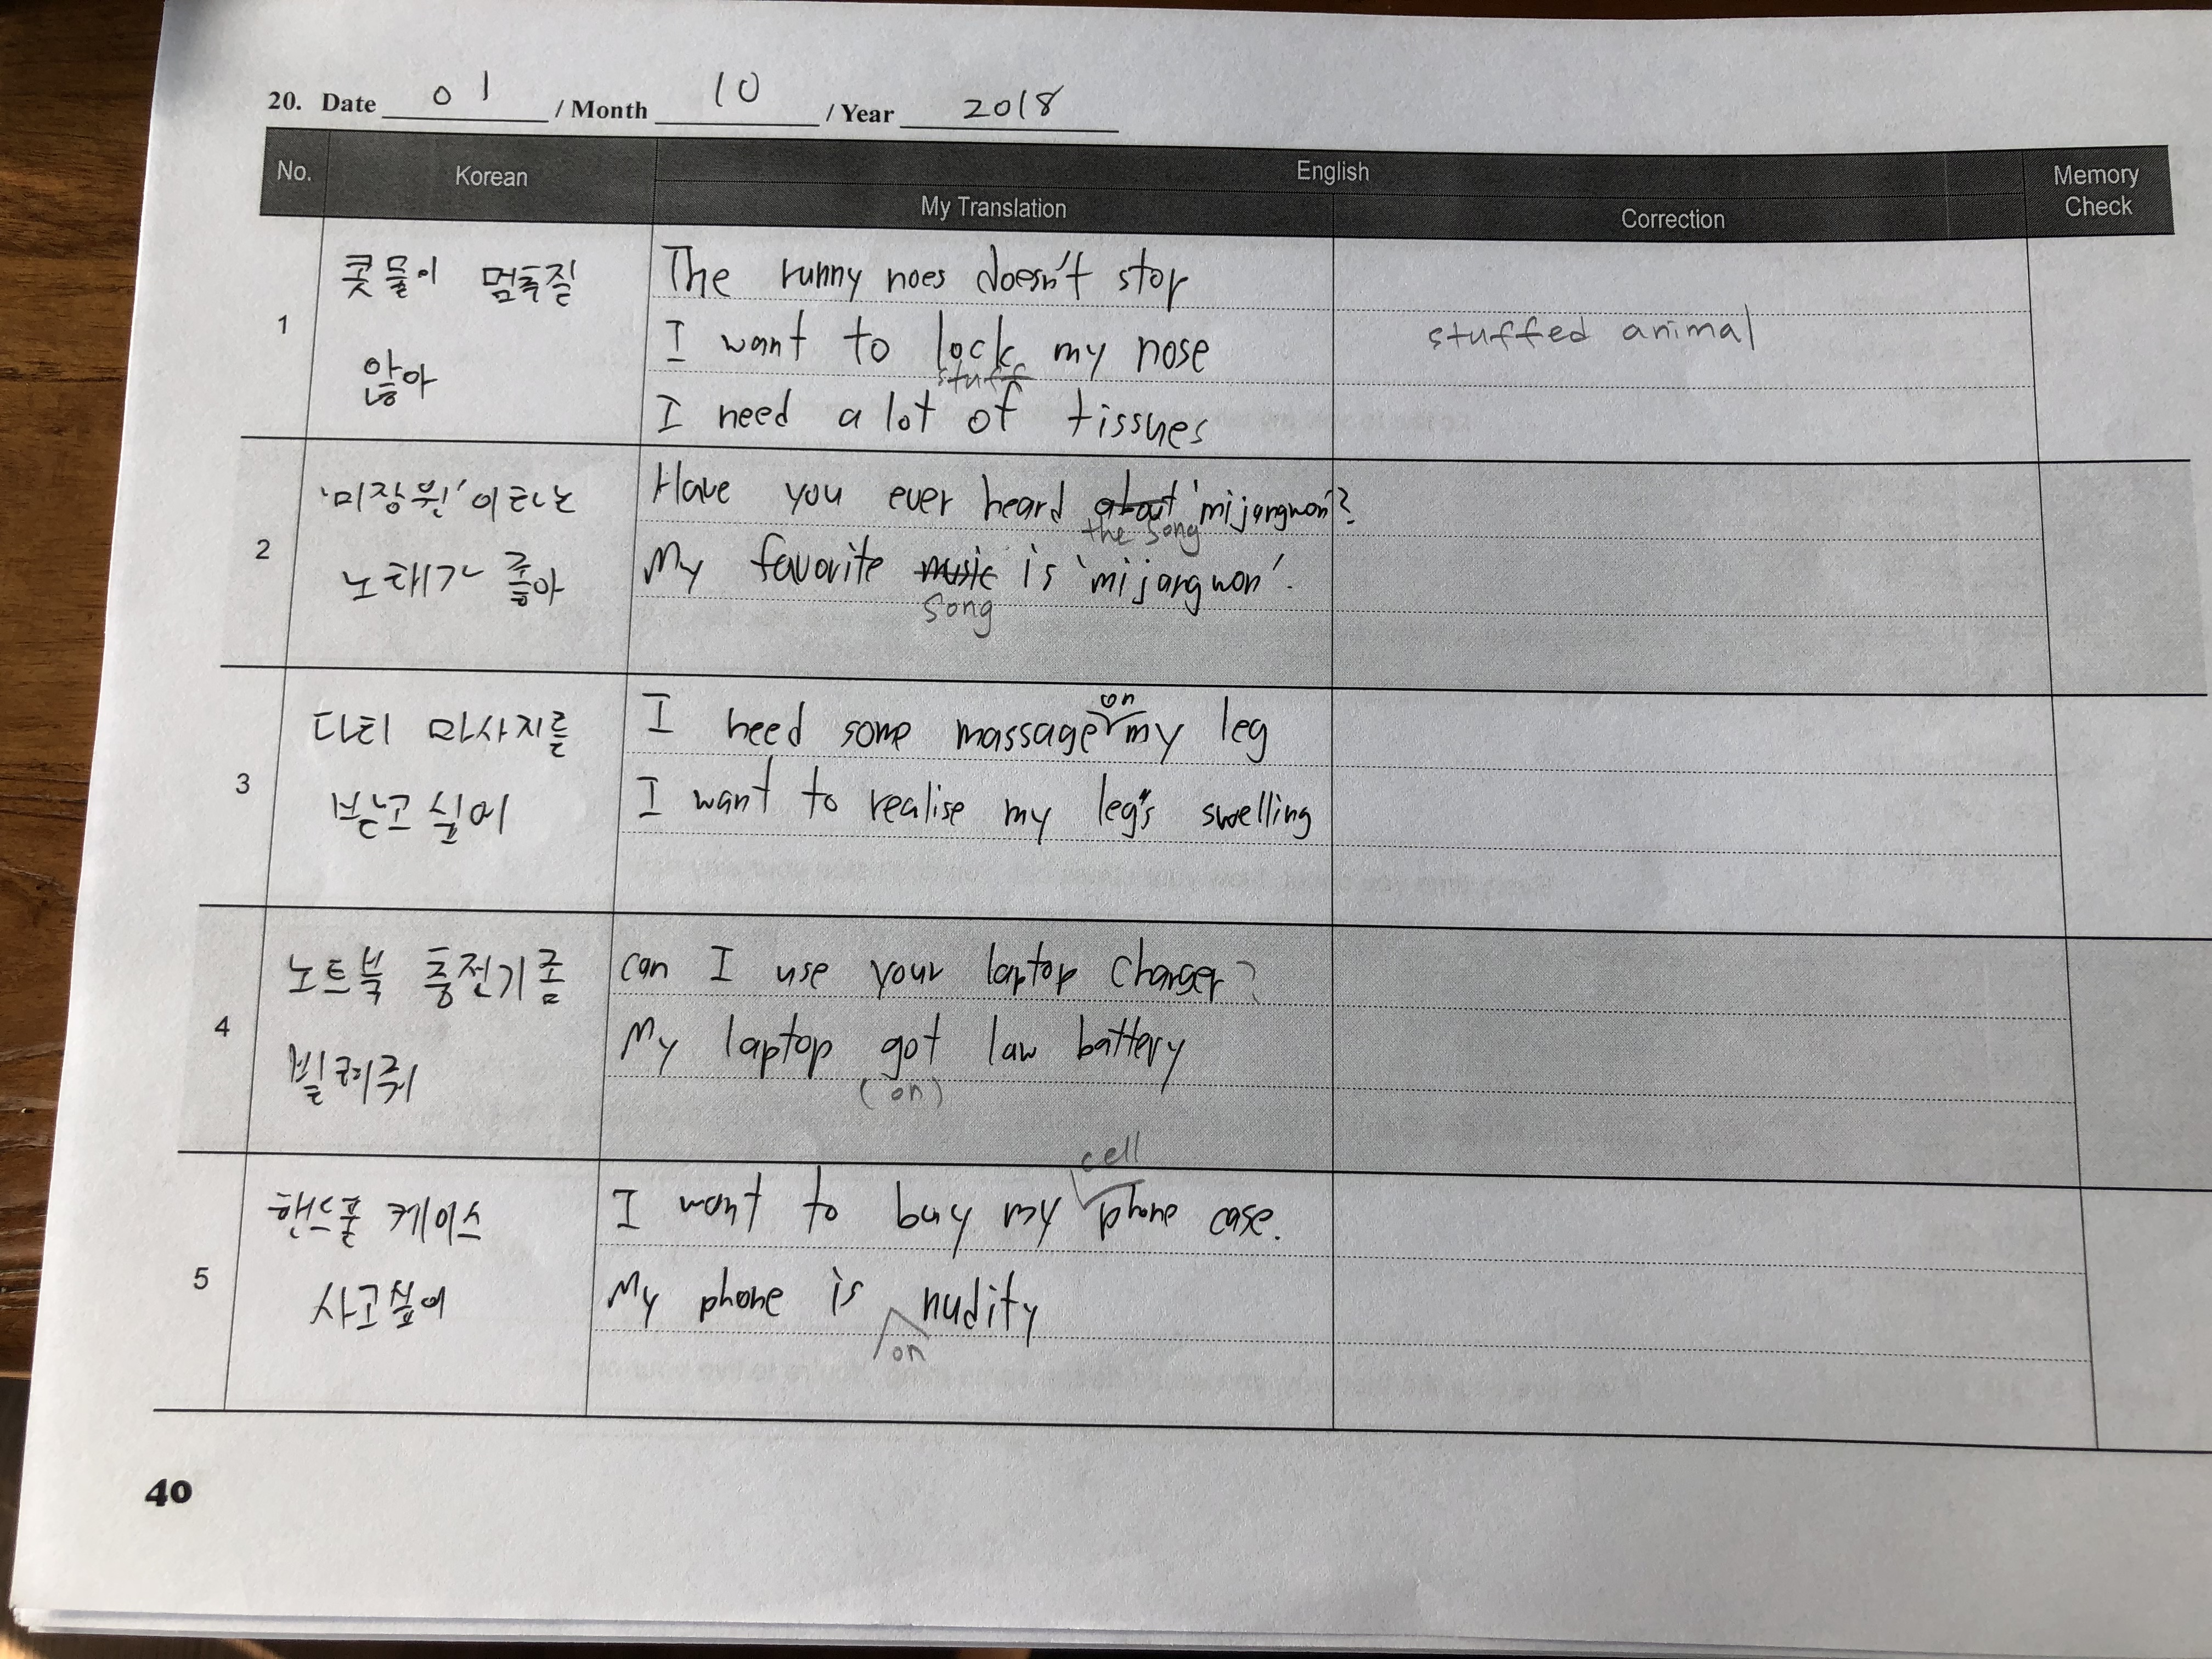 20. Date 01 / Month 10 / Year 2018
No. Korean English Memory Check
My Translation Correction
1
콧물이 멈추질
않아
The runny noes doesn't stop
I want to lock my nose
stuff
I need a lot of tissues
stuffed animal
2
'미장원'이라는
노래가 좋아
Have you ever heard about 'mijangwon'?
the song
My favorite music is 'mijangwon'.
song
3
다리 마사지를
받고 싶어
on
I need some massage my leg
I want to realise my leg's swelling
4
노트북 충전기좀
빌려줘
can I use your laptop charger?
My laptop got law battery
(on)
5
핸드폰 케이스
사고싶어
cell
I want to buy my phone case.
My phone is nudity
on
40